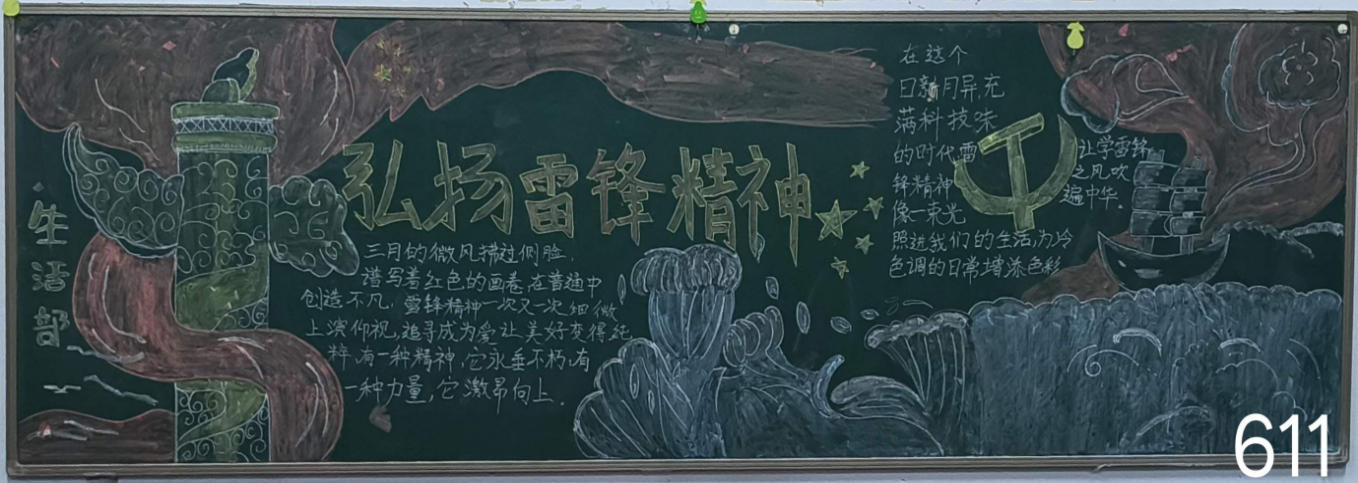 生活部
弘扬雷锋精神
三月的微风拂过侧脸,
谱写着红色的画卷,在普通中
创造不凡,雷锋精神一次又一次细微
上演仰视,追寻成为爱,让美好变得纯
粹,有一种精神,它永垂不朽,有
一种力量,它激昂向上。
在这个
日新月异,充
满科技味
的时代雷
锋精神
像一束光
照进我们的生活,为冷
色调的日常增添色彩
让学雷锋
之风吹
遍中华。
611